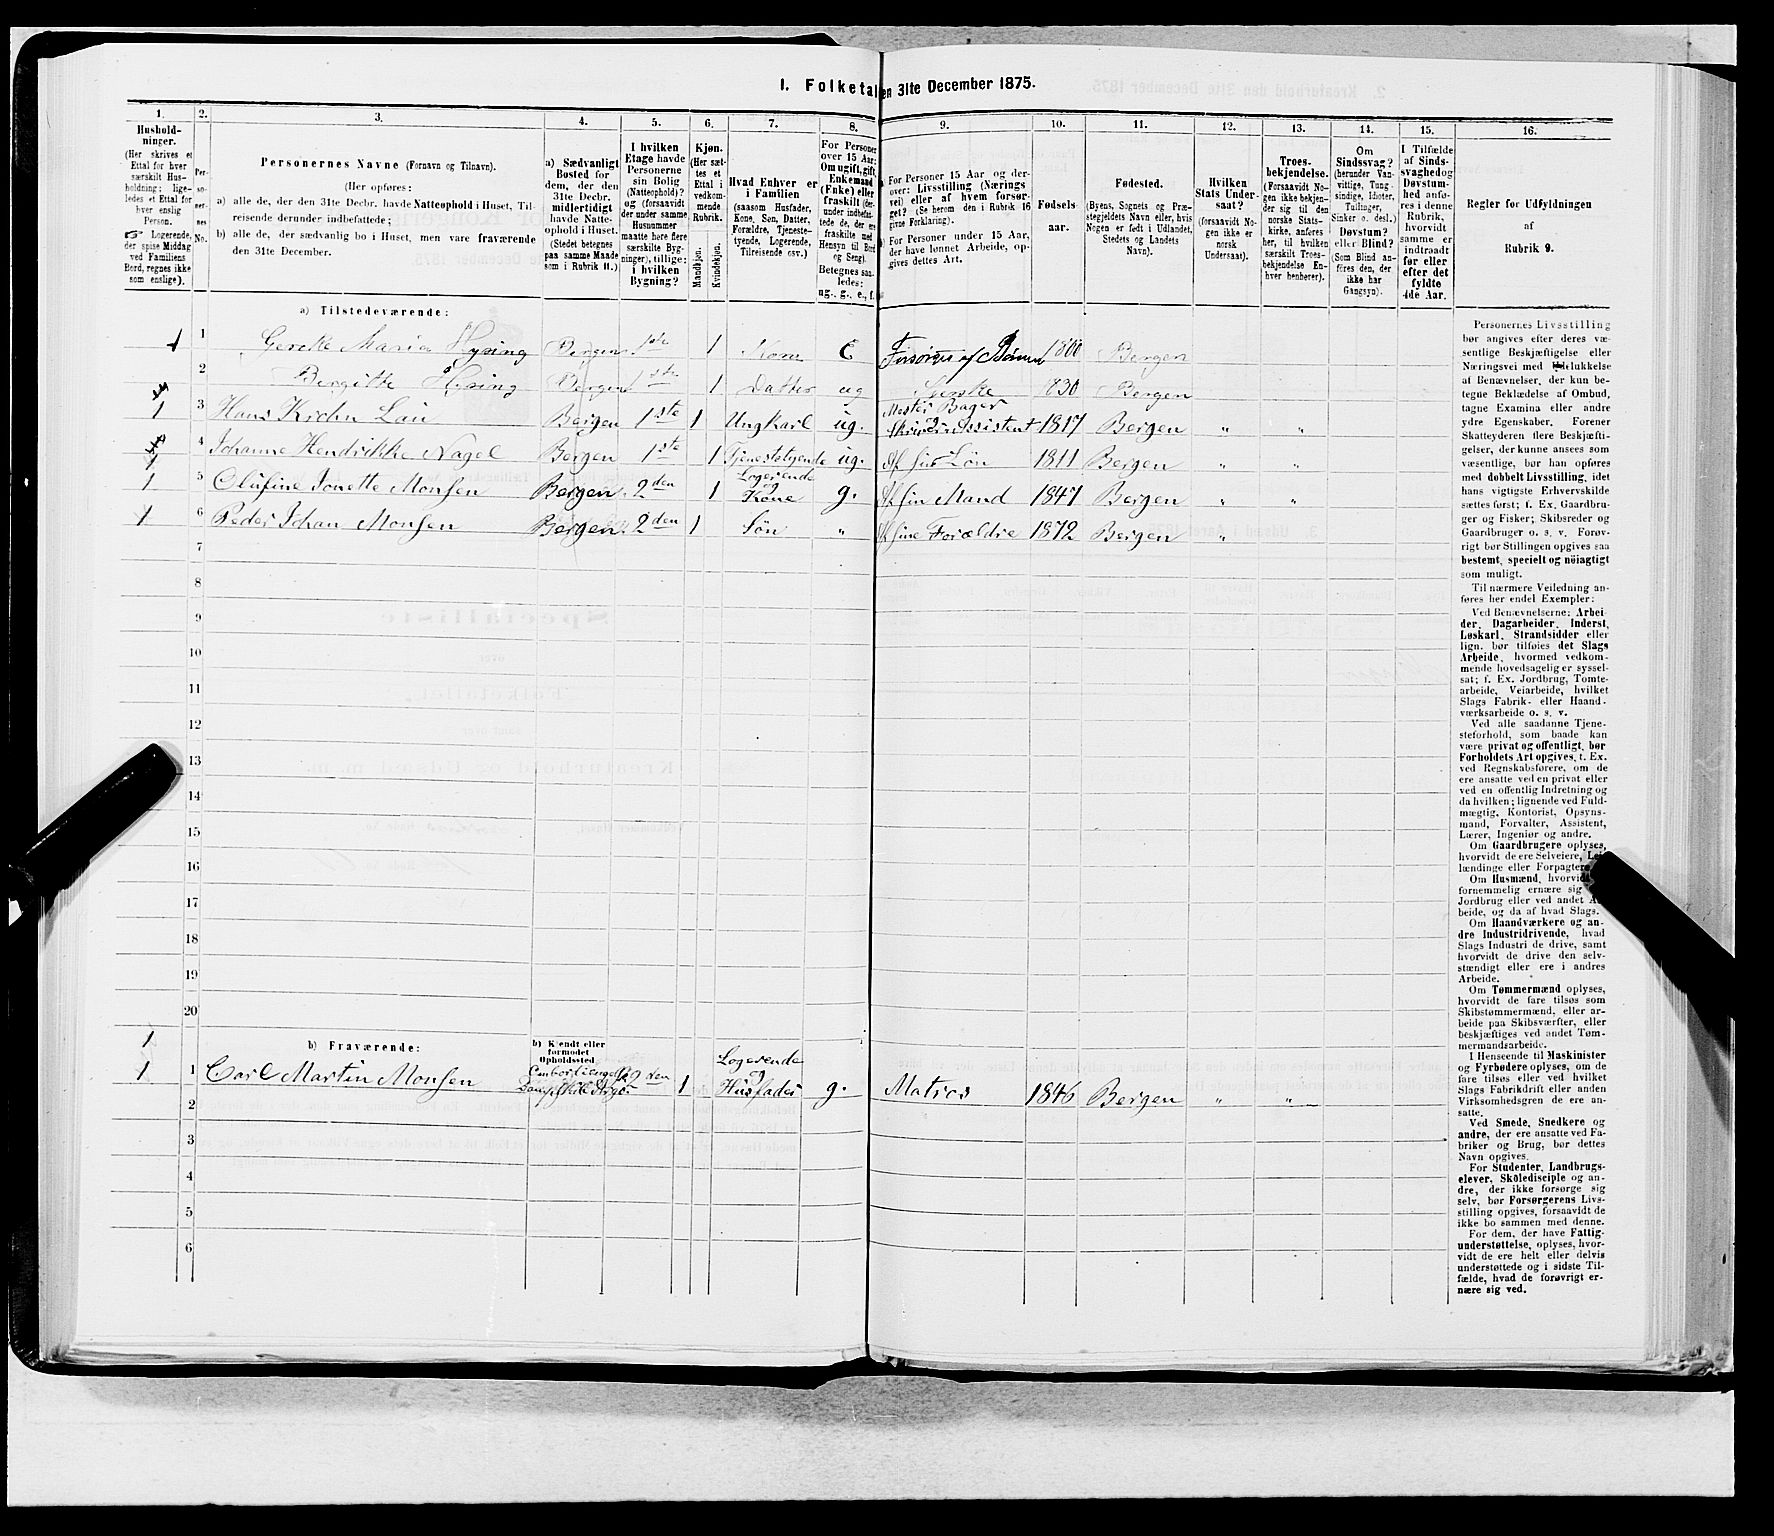 1. Folketal den 31te December 1875.
1. 2. 3. 4. 5. 6. 7. 8. 9. 10. 11. 12. 13. 14. 15. 16.
Hushold-
ninger.
(Her skrives et
Ettal for hver
særskilt Hus-
holdning; lige-
ledes et Ettal for
hver enslig
Person.
☞ Logerende,
der spise Middag
ved Familiens
Bord, regnes ikke
som enslige).
Per-
so-
ner-
nes
No.
Personernes Navne (Fornavn og Tilnavn).
(Her opføres:
a) alle de, der den 31te Decbr. havde Natteophold i Huset, Til-
reisende derunder indbefattede;
b) alle de, der sædvanlig bo i Huset, men vare fraværende
den 31te December.
a) Sædvanligt
Bosted for
dem, der den
31te Decbr.
midlertidigt
havde Natte-
ophold i Huset.
(Stedet betegnes
paa samme Maade
som i Rubrik 11.)
I hvilken
Etage havde
Personerne
sin Bolig
(Natteophold)?
og (forsaavidt
der under samme
Husnummer
maatte høre flere
særskilte Byg-
ninger), tillige:
i hvilken
Bygning?
Kjøn.
(Her sæt-
tes et
Ettal i
vedkom-
mende
Rubrik.
Mandkjøn.
Kvindekjøn.
Hvad Enhver er
i Familien
(saasom Husfader,
Kone, Søn, Datter,
Forældre, Tjeneste-
tyende, Logerende,
Tilreisende osv.)
For Personer
over 15 Aar:
Om ugift, gift,
Enkemand
(Enke) eller
fraskilt (der-
under indbefat-
tede de, der ere
fraskilte med
Hensyn til Bord
og Seng).
Betegnes saa-
ledes:
ug., g., e., f.
For Personer 15 Aar og der-
over: Livsstilling (Nærings
vei) eller af hvem forsør-
get? (Se herom den i Rubrik 16
givne Forklaring).
For Personer under 15 Aar,
der have lønnet Arbeide, op-
gives dettes Art.
Fødsels
aar.
Fødested.
(Byens, Sognets og Præ-
stegjeldets Navn eller, hvis
Nogen er født i Udlandet,
Stedets og Landets
Navn).
Hvilken
Stats Under-
saat?
(forsaavidt No-
gen ikke er
norsk
Undersaat).
Troes-
bekjendelse.
(Forsaavidt No-
gen ikke bekjen-
der sig til den
norske Stats-
kirke, anføres
her, til hvilken
særskilt Troes-
bekjendelse En-
hver henhører).
Om
Sindssvag?
(herunder Van-
vittige, Tung-
sindige, Idioter,
Tullinger,
Sinker o. desl.)
Døvstum?
eller Blind?
(Som Blind an-
føres den, der
ikke har
Gangsyn).
I Tilfælde
af Sinds-
svaghed og
Døvstum-
hed anfø-
res i denne
Rubrik,
hvorvidt
samme er
indtraadt
før eller
efter det
fyldte
4de Aar.
Regler for Udfyldningen
af
Rubrik 9.
a) Tilstedeværende:
1 1 Gercke Maria Hysing Bergen 1ste 1 Kone E Forsørges af Børnene 1800 Bergen
2 Bergitte Hysing Bergen 1ste 1 Datter ug 1830 Bergen
1 3 Hans Krohn Lau Bergen 1ste 1 Ungkarl ug. Mester Bager Assistent 1817 Bergen „ „
1 4 Johanne Hendrikke Nagel Bergen 1ste 1 Tjenestetyende ug. Af sin Løn 1811 Bergen „ „
1 5 Olufine Jonette Monsen Bergen. 2den 1 Logerende og Kone g. Af sin Mand 1847 Bergen „ „
1 6 Peder Johan Monsen Bergen. 2den 1 Søn „ Af sine Forældre 1872 Bergen „
7
8
9
10
11
12
13
14
15
16
17
18
19
20
1
b) Fraværende:
b) Kjendt eller
formodet
Opholdssted.
1 1 Carl Martin Monsen 2den 1 Logerende og Husfader g. Matros 1846 Bergen „ „
2
3
4
5
6
Personernes Livsstilling
bør angives efter deres væ-
sentlige Beskjæftigelse eller
Næringsvei med Udelukkelse
af Benævnelser, der kun be-
tegne Beklædelse af Ombud,
tagne Examina eller andre
ydre Egenskaber. Forener
Skatteyderen flere Beskjæfti-
gelser, der kunne ansees som
væsentlige, bør han opføres
med dobbelt Livsstilling, idet
hans vigtigste Erhvervskilde
sættes først; f. Ex. Gaardbru-
ger og Fisker; Skibsreder og
Gaardbruger o. s. v. Forøv-
rigt bør Stillingen opgives saa
bestemt, specielt og nöiagtigt
som muligt.
Til nærmere Veiledning an-
føres her endel Exempler:
Ved Benævnelserne: Arbei-
der, Dagarbeider, Inderst,
Løskarl, Strandsidder eller
lign. bør tilføies det Slags
Arbeide, hvormed vedkom-
mende hovedsagelig er syssel-
sat; f. Ex. Jordbrug, Tomte-
arbeide, Veiarbeide, hvilket
Slags Fabrik- eller Haand-
værksarbeide o. s. v.
Ved alle saadanne Tjene-
steforhold, som baade kan
være privat og offentligt, bør
Forholdets Art opgives, f. Ex.
ved Regnskabsførere, om de
ere ansatte ved en privat eller
ved en offentlig Indretning og
da hvilken; lignende ved Fuld-
mægtig, Kontorist, Opsyns-
mand, Forvalter, Assistent,
Lærer, Ingeniør og andre.
Om Gaardbrugere oplyses,
hvorvidt de ere Selveiere, Lei-
lændinge eller Forpagtere.
Om Husmænd, hvorvidt
fornemmelig ernære sig
Jordbrug eller ved andet Ar-
beide, og da af hvad Slags.
Om Haandværkere og an-
dre Industridrivende, hvad
Slags Industri de drive, samt
hvorvidt de drive den selv-
stændigt eller ere i andres
Arbeide.
Om Tømmermænd oplyses,
hvorvidt de fare tilsøs som
Skibstømmermænd, eller ar-
beide paa Skibsværfter, eller
beskjæftiges ved andet Tøm-
mermandsarbeide.
I Henseende til Maskinister
og Fyrbødere oplyses, om de
fare tilsøs eller ved hvilket
Slags Fabrikdrift eller anden
Virksomhedsgren de ere an-
satte.
Ved Smede, Snedkere og
andre, der ere ansatte ved Fa-
briker og Brug, bør dettes
Navn opgives.
For Studenter, Landbrugs-
elever, Skoledisciple og an-
dre, der ikke forsørge sig
selv, bør Forsørgerens Livs-
stilling opgives, forsaavidt de
ikke bo sammen med denne.
For dem, der have Fattig-
understøttelse, oplyses, hvor-
vidt de ere helt eller delvis
understøttede og i sidste Til-
fælde, hvad de forøvrigt er-
nære sig ved.